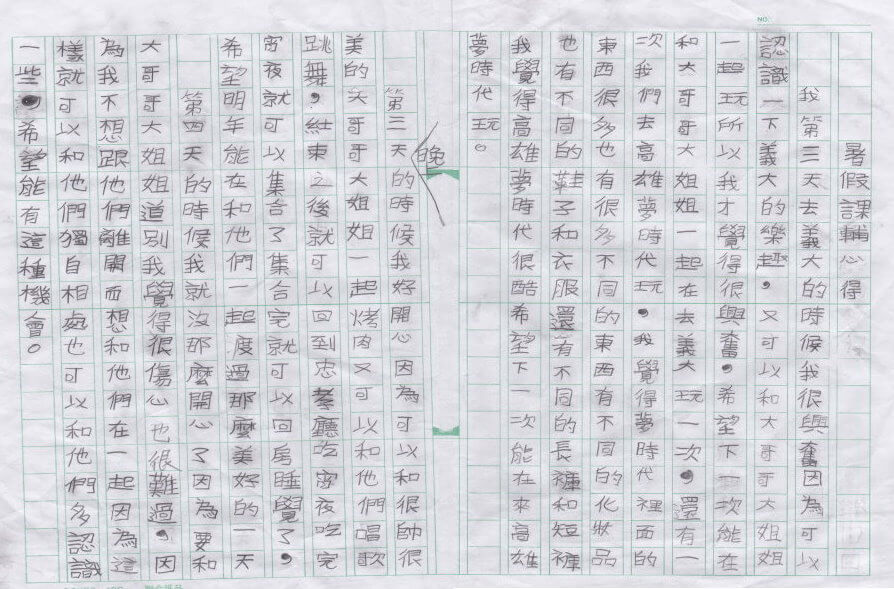 NO.
暑假課輔心得
我第三天去義大的時候我很興奮因為可以
認識一下義大的樂趣，又可以和大哥哥大姐姐
一起玩所以我才覺得很興奮，希望下一次能在
和大哥哥大姐姐一起在去義大玩一次，還有一
次我們去高雄夢時代玩，我覺得夢時代裡面的
東西很多也有很多不同的東西有不同的化妝品
也有不同的鞋子和衣服還有不同的長褲和短褲
我覺得高雄夢時代很酷希望下一次能在來高雄
夢時代玩。
晚
第三天的時候我好開心因為可以和很帥很
美的大哥哥大姐姐一起烤肉又可以和他們唱歌
跳舞，結束之後就可以回到忠孝廳吃宵夜吃完
宵夜就可以集合了集合完就可以回房睡覺了，
希望明年能在和他們一起度過那麼美好的一天
第四天的時候我就沒那麼開心了因為要和
大哥哥大姐姐道別我覺得很傷心也很難過，因
為我不想跟他們離開而想和他們在一起因為這
樣就可以和他們獨自相處也可以和他們多認識
一些，希望能有這種機會。